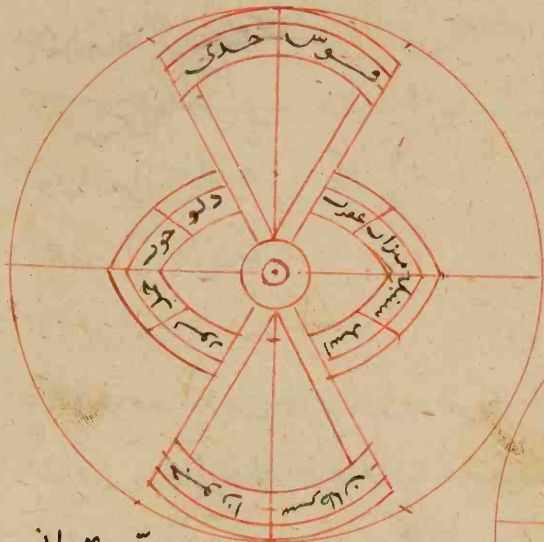 قوس جدى
دلو حوت
حمل ثور
ميزان عقرب
اسد سنبله
جوزا
سرطان